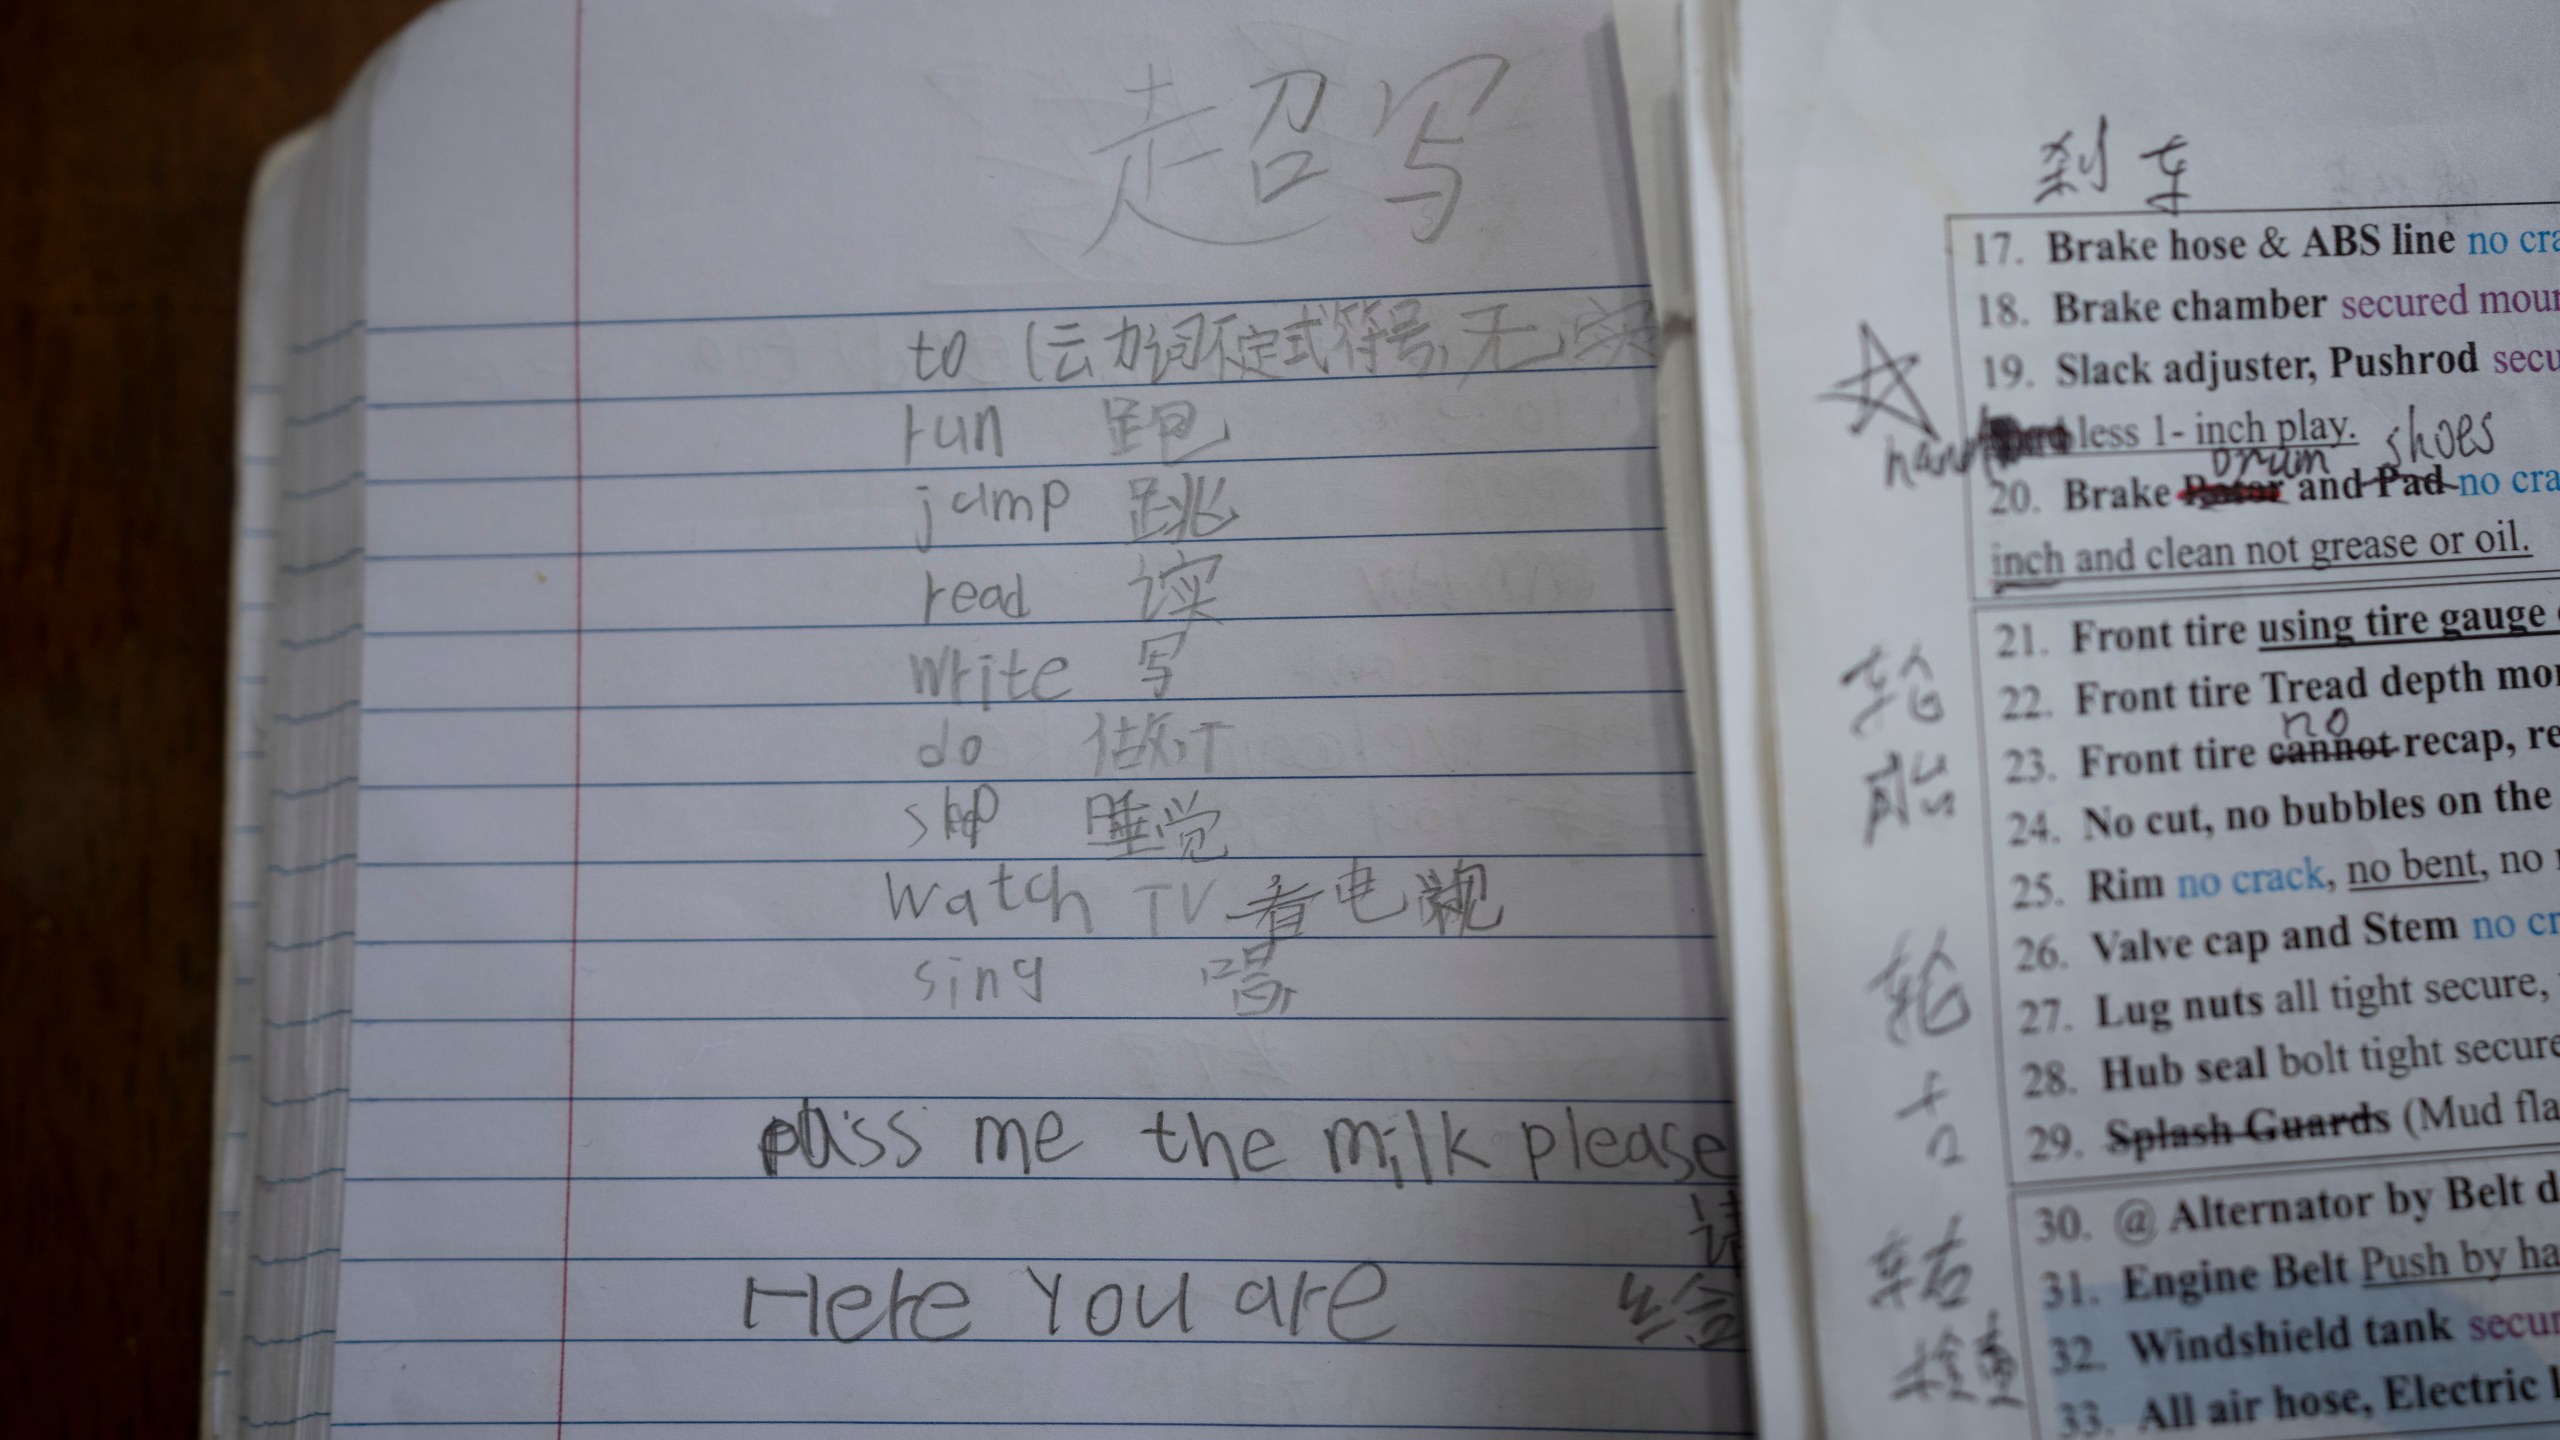 超写
to (动词不定式符号, 无实
run 跑
jump 跳
read 读
write 写
do 做, 干
sleep 睡觉
watch TV 看电视
sing 唱
pass me the milk please
请
Here you are 给
刹车
17. Brake hose & ABS line no cra
18. Brake chamber secured moun
19. Slack adjuster, Pushrod secu
hand less 1- inch play.
drum shoes
20. Brake Rotor and Pad no cra
inch and clean not grease or oil.
轮胎
21. Front tire using tire gauge
22. Front tire Tread depth mor
no
23. Front tire cannot recap, re
24. No cut, no bubbles on the
25. Rim no crack, no bent, no
26. Valve cap and Stem no cr
27. Lug nuts all tight secure,
28. Hub seal bolt tight secure
29. Splash Guards (Mud fla
30. @ Alternator by Belt d
31. Engine Belt Push by ha
32. Windshield tank secur
33. All air hose, Electric